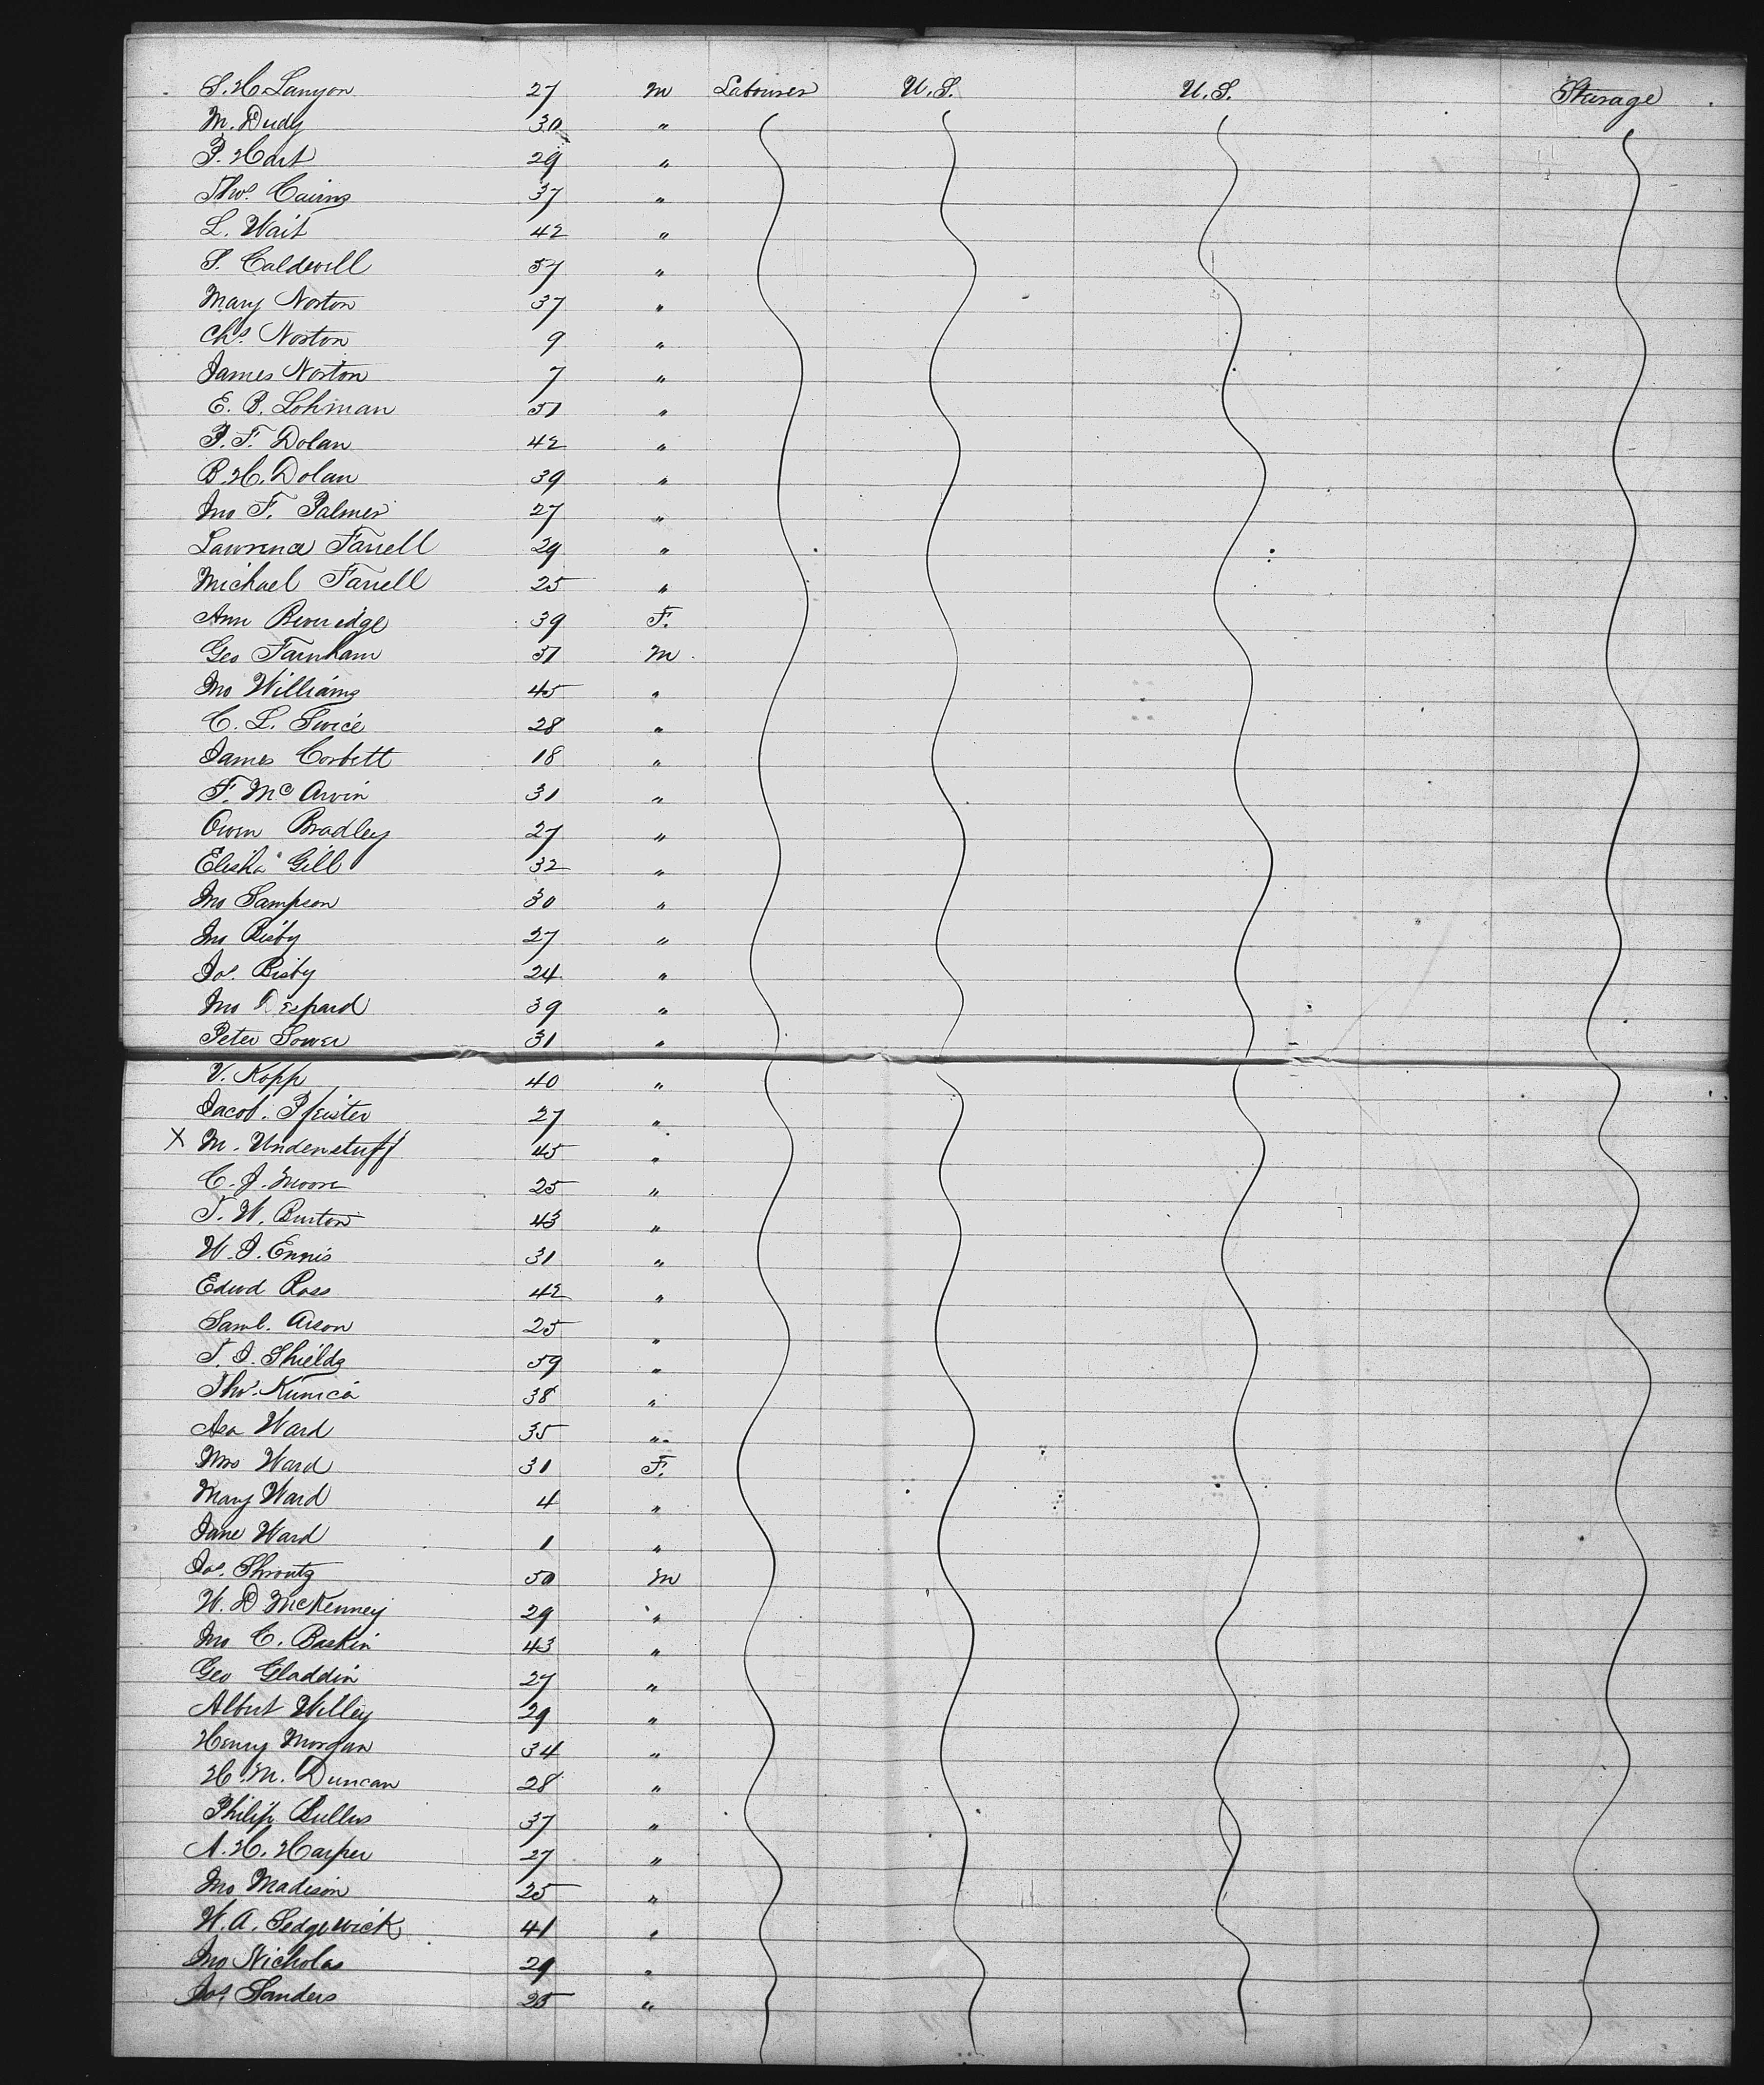 S. H. Lanyon 27 M Labourer U.S. U.S. Sterage
M. Dudy 30 "
P. Hart 29 "
Thos. Cairns 37 "
L. Wait 42 "
S. Caldwell 57 "
Mary Norton 37 "
Chs. Norton 9 "
James Norton 7 "
E. B. Lohman 51 "
P. F. Dolan 42 "
B. H. Dolan 39 "
Jno F. Palmer 27 "
Lawrence Farrell 29 "
Michael Farrell 25 "
Ann Beveridge 39 F.
Geo Farnham 37 M
Jno Williams 45 "
C. L. Swice 28 "
James Corbett 18 "
F. Mc Arvin 31 "
Owen Bradley 27 "
Elisha Gill 32 "
Jno Sampson 30 "
Jno Bisby 27 "
Jos. Bisby 24 "
Jno Despard 39 "
Peter Sower 31 "
V. Kopp 40 "
Jacob. Pfeister 27 "
X M. Undenstuff 45 "
C. J. Moore 25 "
T. W. Burton 43 "
W. J. Ennis 31 "
Edwd Ross 42 "
Saml. Arson 25 "
T. J. Shields 59 "
Thos. Kunica 38 "
Asa Ward 35 "
Mrs Ward 31 F.
Mary Ward 4 "
Jane Ward 1 "
Jos. Shrontz 50 M
W. D McKenney 29 "
Jno C. Baskin 43 "
Geo Gladdin 27 "
Albert Willey 29 "
Henry Morgan 34 "
H. M. Duncan 28 "
Philip Bullus 37 "
A. H. Harper 27 "
Jno Madison 25 "
W. A. Sedgewick 41 "
Jno Nicholas 29 "
Jos. Sanders 25 "